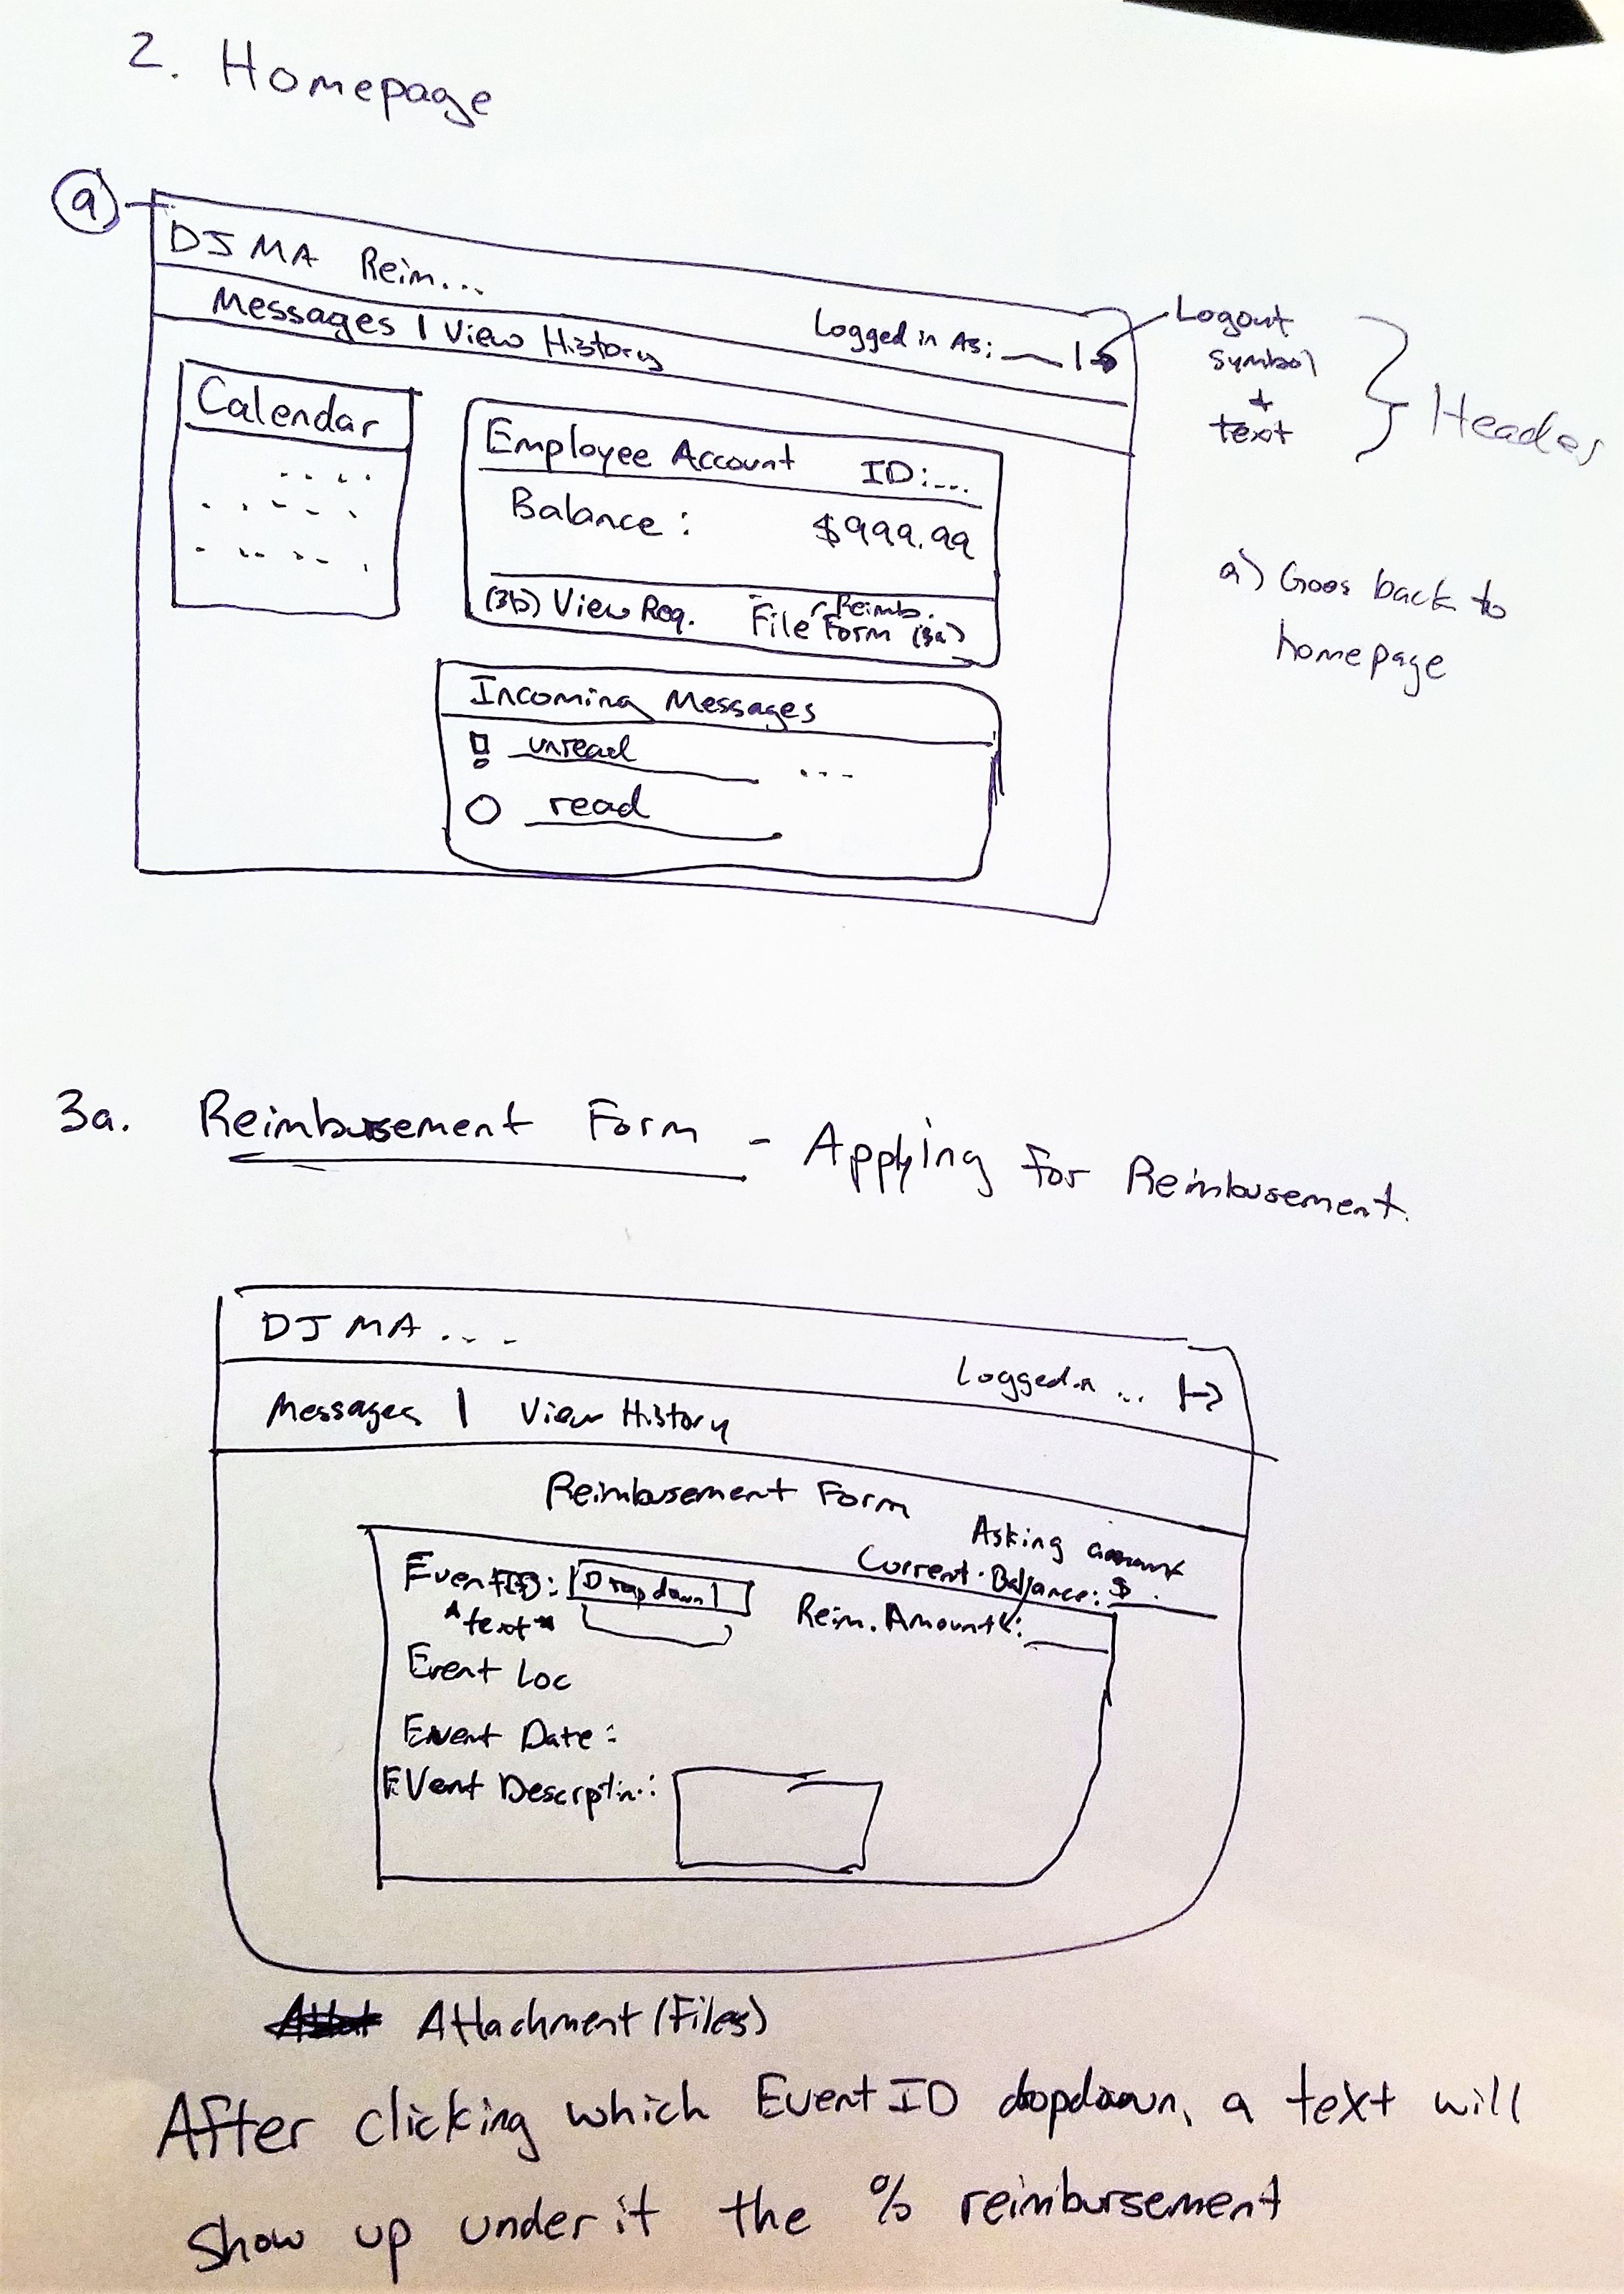 2. Homepage
a
DJ MA Reim...
Messages | View History
Logged in As: __
Logout
symbol
+
text
Header
Calendar
Employee Account ID:...
Balance: $999.99
(3b) View Req. File Reimb. Form (3a)
Incoming Messages
unread ...
read
a) Goes back to
homepage
3a. Reimbursement Form - Applying for Reimbusement.
DJ MA ...
Logged in ...
Messages | View History
Reimbusement Form
Asking amount
Current Balance: $
Event ID: Dropdown
*text*
Reim. Amount:
Event Loc
Event Date:
Event Descrptin:
Attachment (Files)
After clicking which Event ID dropdown, a text will
show up under it the % reimbursement